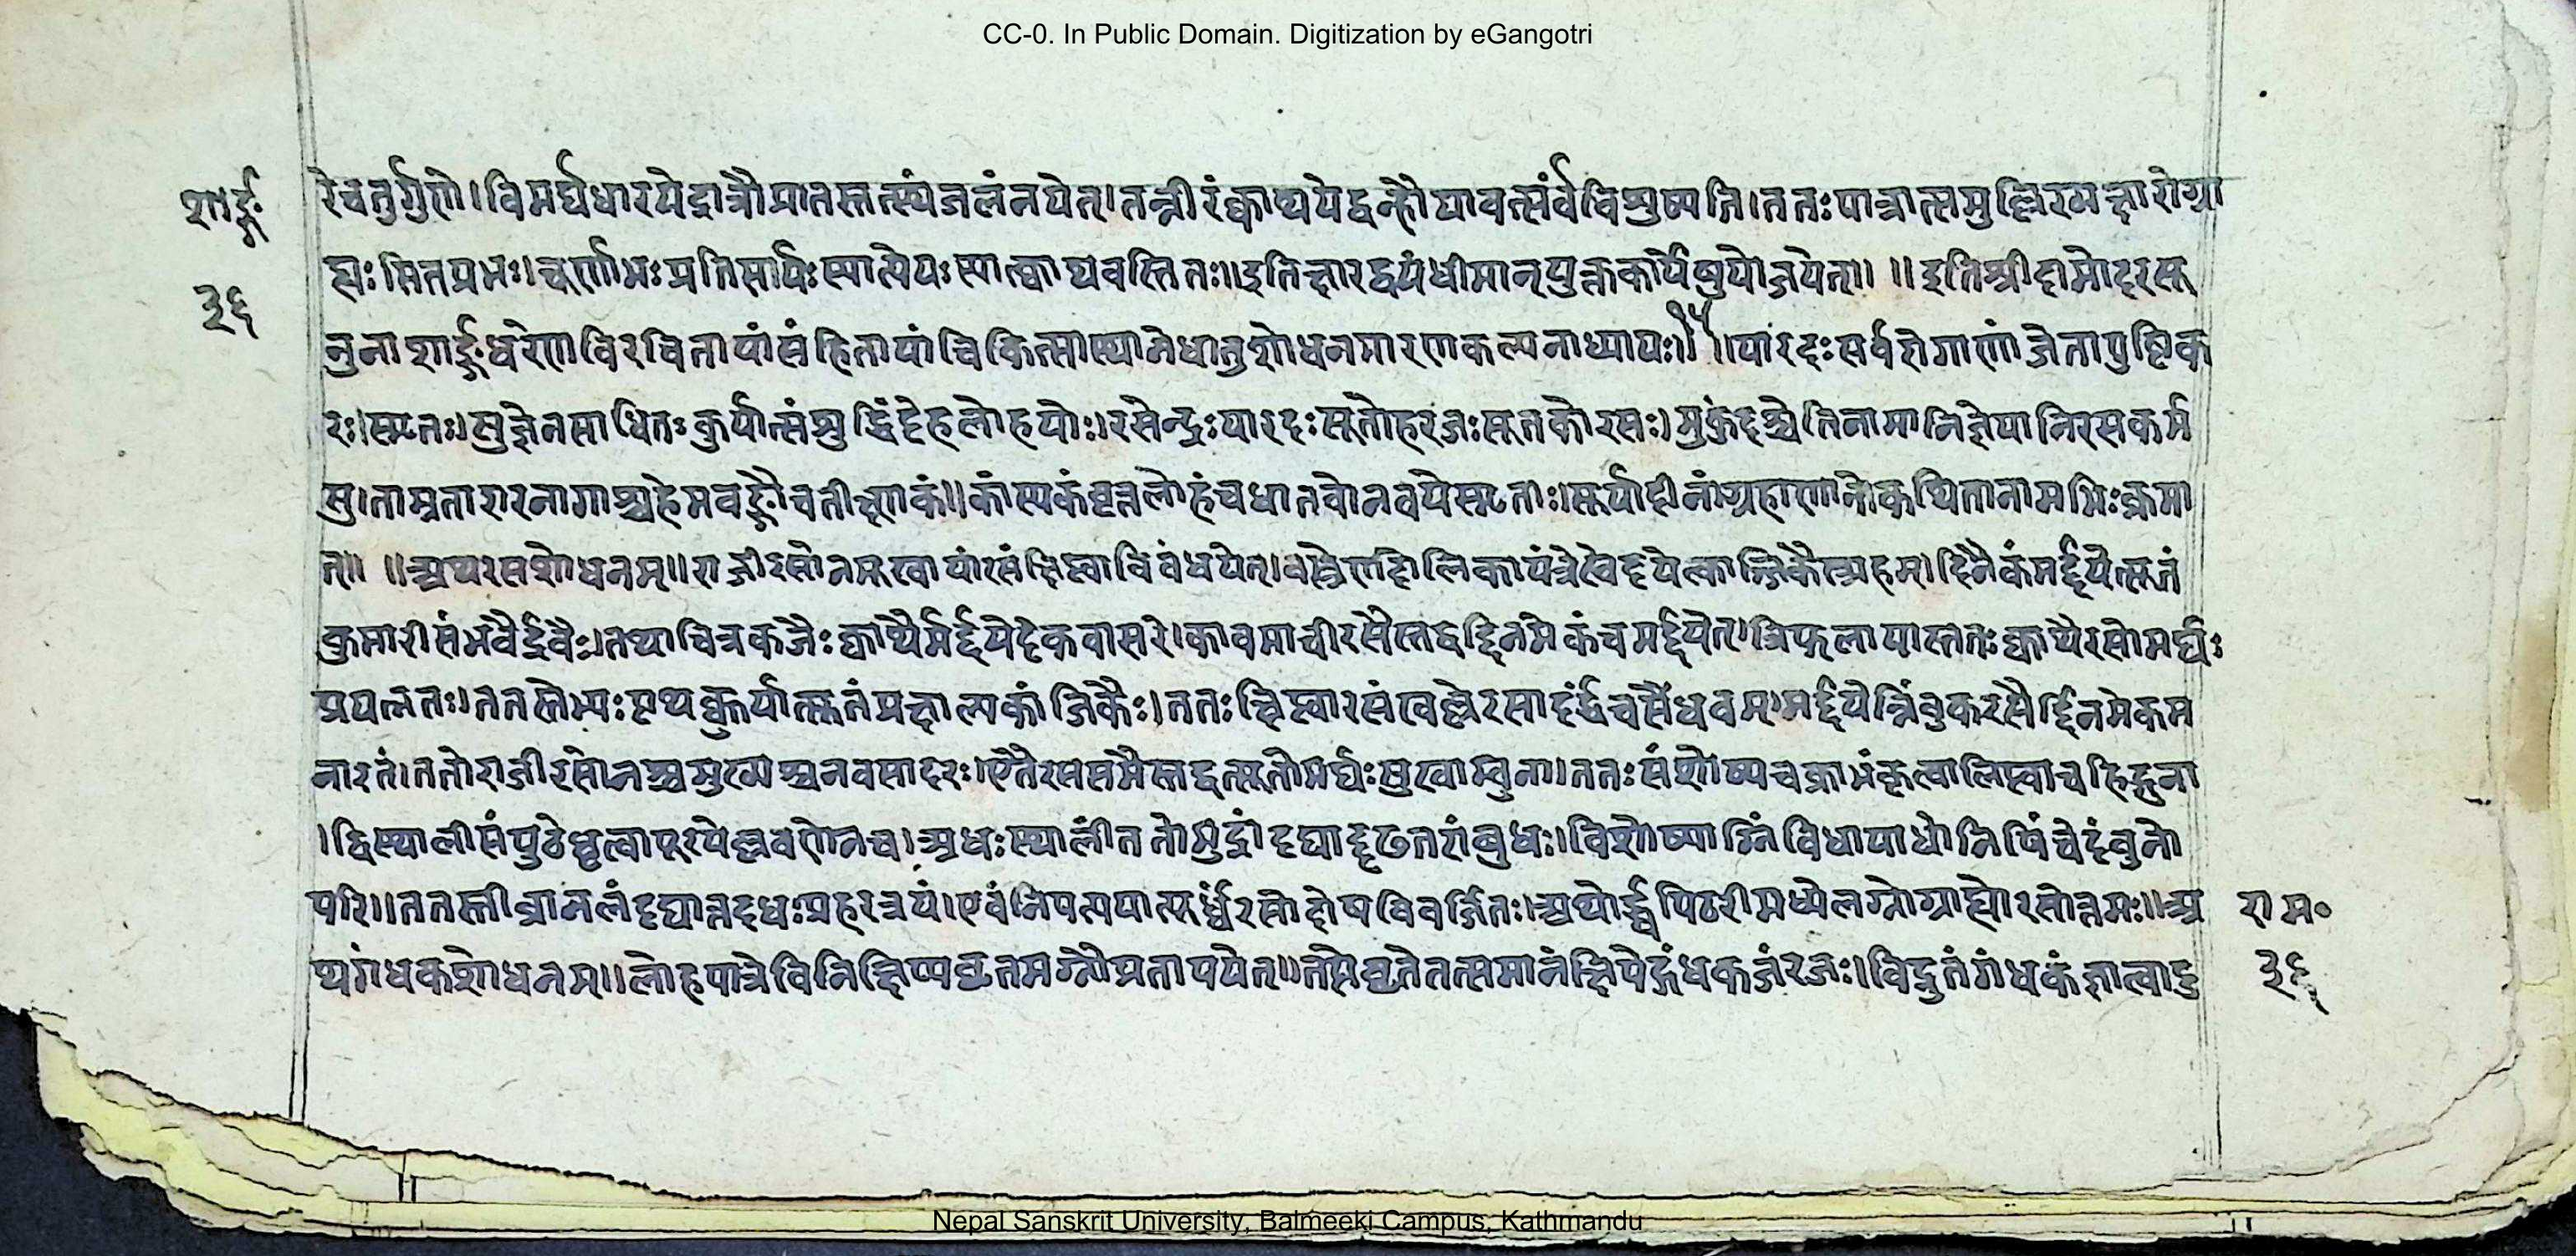 CC-0. In Public Domain. Digitization by eGangotri
शार्ङ्ग
३६
रेचतुर्गुणे।विमर्द्यधारयेद्रात्रौप्रातस्तत्स्थंजलंनयेत्।तन्नीरंक्वाथयेद्वन्हौयावत्सर्वंविशुष्यति।ततःपात्रात्समुल्लिख्यक्षारोग्रा
ह्यःसितप्रभः।चूर्णाभःप्रतिसार्यःस्यात्पेयःस्यात्क्वाथवस्थितः॥इतिक्षारद्वयंधीमान्युक्तकार्येषुयोजयेत्॥ ॥इतिश्रीदामोदरसू
नुनाशार्ङ्गधरेणविरचितायांसंहितायांचिकित्सास्थानेधातुशोधनमारणकल्पनाध्यायः॥१५॥पारदःसर्वरोगाणांजेतापुष्टिक
रःस्मृतः।सुज्ञेनसाधितःकुर्यात्संशुद्धिंदेहलोहयोः।रसेन्द्रःपारदःसूतोहरजःसूतकोरसः।मुकुंदश्चेतिनामानिज्ञेयानिरसकर्म
सु।ताम्रतारारनागाश्चहेमवङ्गौचतीक्ष्णकं॥कांस्यकंवृत्तलोहंचधातवोनवयेस्मृताः।सूर्यादीनांग्रहाणांनोकथितानामभिःक्रमा
त्॥ ॥अथरसशोधनम्॥राजीरसोनमूखायांरसंक्षिप्त्वाविबंधयेत्।वस्त्रेणदोलिकायंत्रेस्वेदयेत्काञ्जिकैस्त्र्यहम्।दिनैकंमर्द्दयेत्सूतं
कुमारीसंभवैर्द्रवैः।तथाचित्रकजैःक्वाथैर्मर्द्दयेदेकवासरं।काकमाचीरसैस्तद्वद्दिनमेकंचमर्द्दयेत्।त्रिफलायास्ततःक्वाथैरसोमर्द्यः
प्रयत्नतः।ततस्तेभ्यःपृथक्कुर्यात्सूतंप्रक्षाल्यकांजिकैः।ततःक्षिप्त्वारसंखल्लेरसादर्द्धंचसैंधवम्।मर्द्दयेन्निंबुकरसैर्द्दिनमेकम
नारतं।ततोराजीरसोनश्चमुख्यश्चनवसादरः।एतैरससमैस्तद्वत्सूतोमर्द्यःसुखाम्बुना।ततःसंशोष्यचक्राभंकृत्वालिप्त्वाचहिङ्गुना
।द्विस्थालीसंपुटेधृत्वापूरयेल्लवणेनच।अधःस्थालींततोमुद्रांदद्याद्दृढतरांबुधः।विशोष्याग्निंविधायाधोनिषिंचेदंबुनो
परि॥ततस्तीव्रानलंदद्यात्तदधःप्रहरत्रयं।एवंनिपत्ययात्यूर्ध्वंरसोदोषविवर्जितः।अथोर्द्ध्वपिठरीमध्येलग्नोग्राह्योरसोत्तमः॥अ
थगंधकशोधनम्॥लोहपात्रेविनिक्षिप्यघृतमग्नौप्रतापयेत्॥तप्तेघृतेतत्समानंक्षिपेद्गंधकजंरजः।विद्रुतंगंधकंज्ञात्वादु
राम॰
३६
Nepal Sanskrit University, Balmeeki Campus, Kathmandu